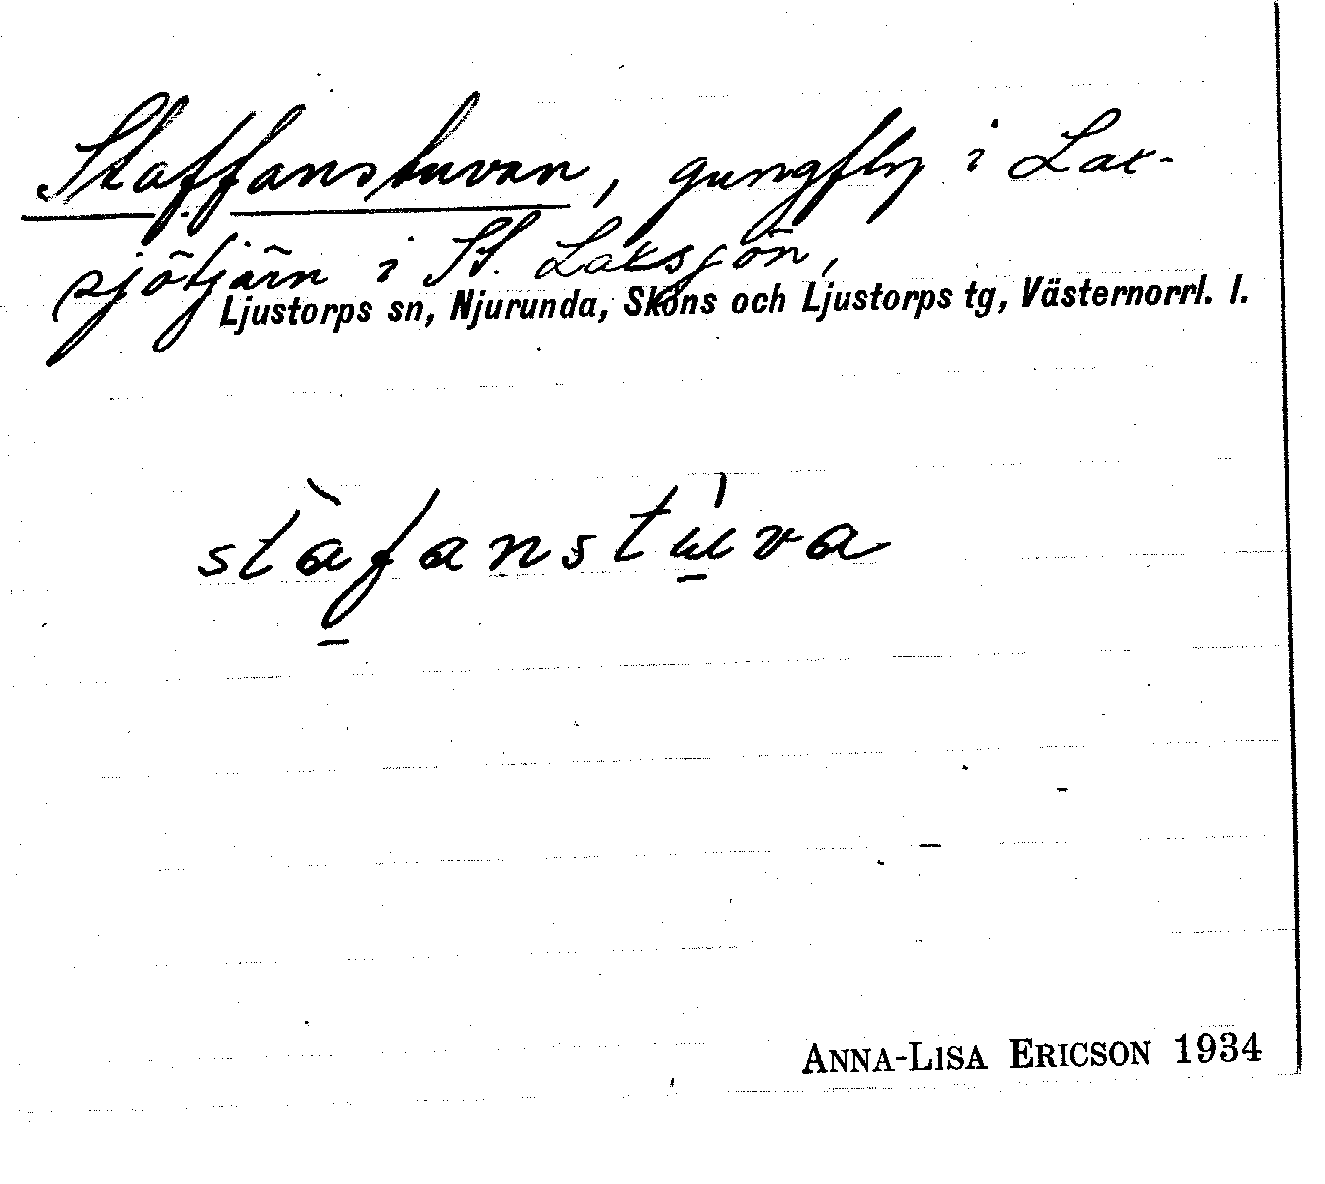 Staffanstuvan, gungfly i Lak-
sjötjärn i St. Laksjön,
Ljustorps sn, Njurunda, Sköns och Ljustorps tg, Västernorrl. l.
stàfanstúva
ANNA-LISA ERICSON 1934